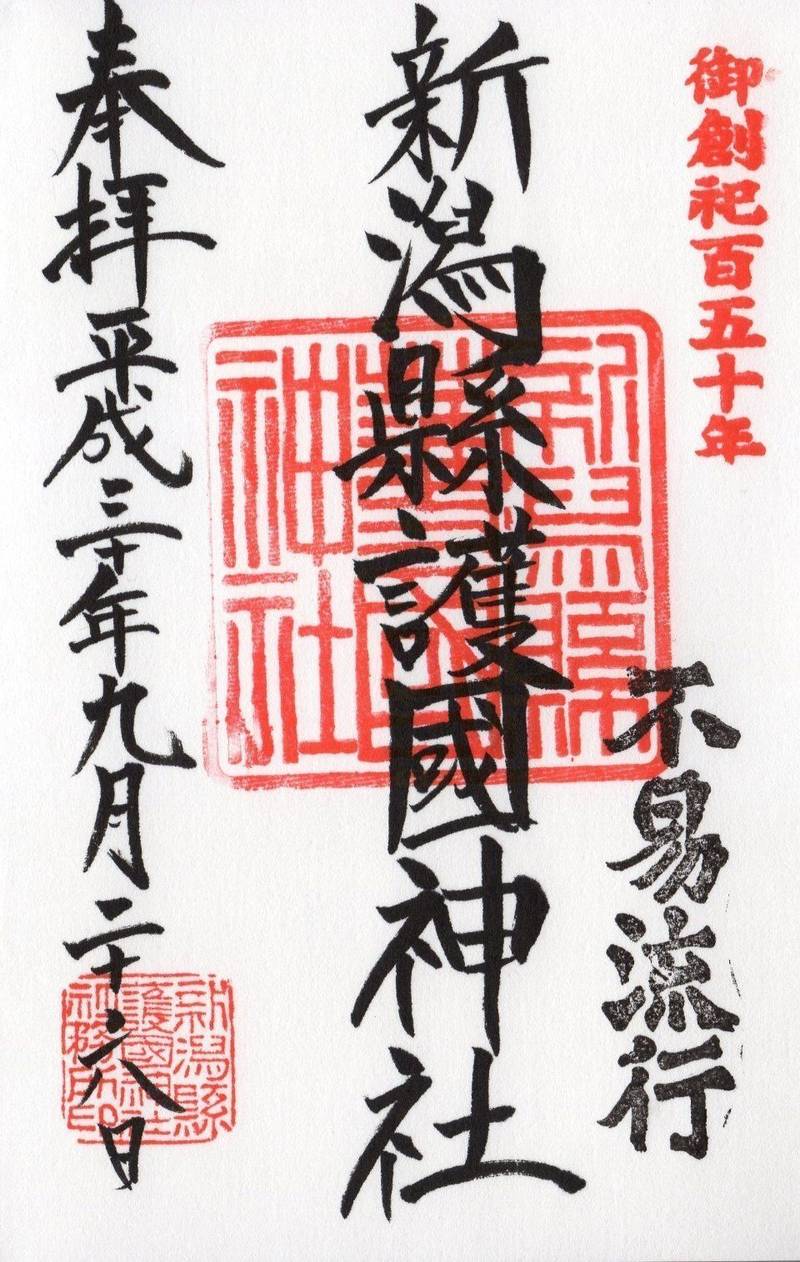 御創祀百五十年
不易流行
新潟縣護國神社
新潟縣護國神社
奉拝 平成三十年九月二十六日
新潟縣護國神社社務所印